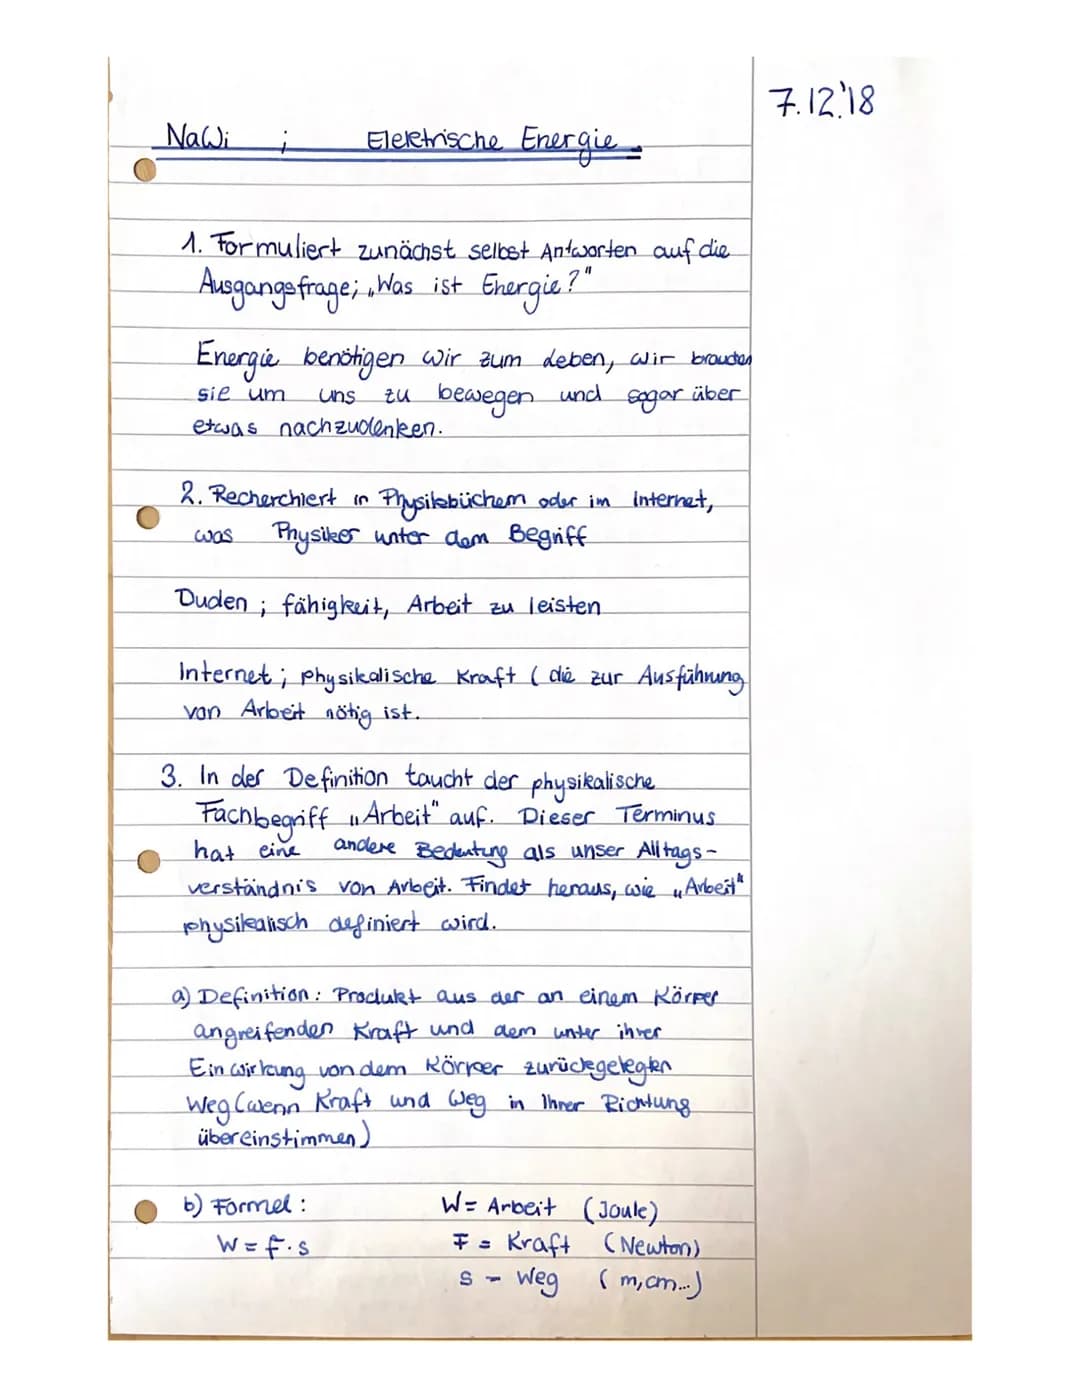 7.12.'18
NaWi ; Elektrische Energie
1. Formuliert zunächst selbst Antworten auf die
Ausgangsfrage; „Was ist Energie?"
Energie benötigen wir zum Leben, wir brauchen
sie um uns zu bewegen und sogar über
etwas nachzudenken.
2. Recherchiert in Physikbüchern oder im Internet,
was Physiker unter dem Begriff
Duden ; fähigkeit, Arbeit zu leisten
Internet ; physikalische Kraft ( die zur Ausführung
von Arbeit nötig ist.
3. In der Definition taucht der physikalische
Fachbegriff „Arbeit" auf. Dieser Terminus
hat eine andere Bedeutung als unser Alltags-
verständnis von Arbeit. Findet heraus, wie „Arbeit"
physikalisch definiert wird.
a) Definition: Produkt aus der an einem Körper
angreifenden Kraft und dem unter ihrer
Einwirkung von dem Körper zurückgelegten
Weg (wenn Kraft und Weg in Ihrer Richtung
übereinstimmen)
b) Formel: W = Arbeit (Joule)
W = F · s F = Kraft (Newton)
s - Weg (m, cm...)